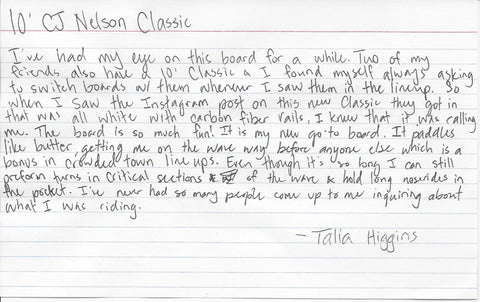 10' CJ Nelson Classic
I've had my eye on this board for a while. Two of my
friends also have a 10' Classic & I found myself always asking
to switch boards w/ them whenever I saw them in the lineup. So
when I saw the Instagram post on this new Classic they got in
that was all white with carbon fiber rails, I knew that it was calling
me. The board is so much fun! It is my new go-to board. It paddles
like butter, getting me on the wave way before anyone else which is a
bonus in crowded town line ups. Even though it's so long I can still
preform turns in critical sections of the wave & hold long noserides in
the pocket. I've never had so many people come up to me inquiring about
what I was riding.
- Talia Higgins